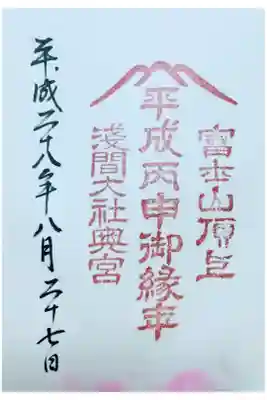 富士山頂上
平成丙申御縁年
浅間大社奥宮
平成二十八年八月二十七日